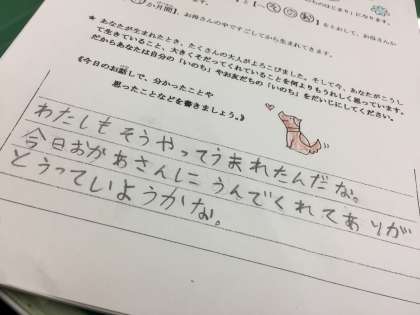 か月間】、お母さんの中ですごしてから生まれてきます。
★ あなたが生まれたとき、たくさんの大人がよろこびました。そして今、あなたがこうし
て生きていること、大きくそだってくれていることを何よりもうれしく思っています。
だからあなたは自分の「いのち」やお友だちの「いのち」をだいじにしてください。
《今日のお話で、分かったことや
思ったことなどを書きましょう。》
わたしもそうやってうまれたんだな。
今日おかあさんにうんでくれてありが
とうっていようかな。